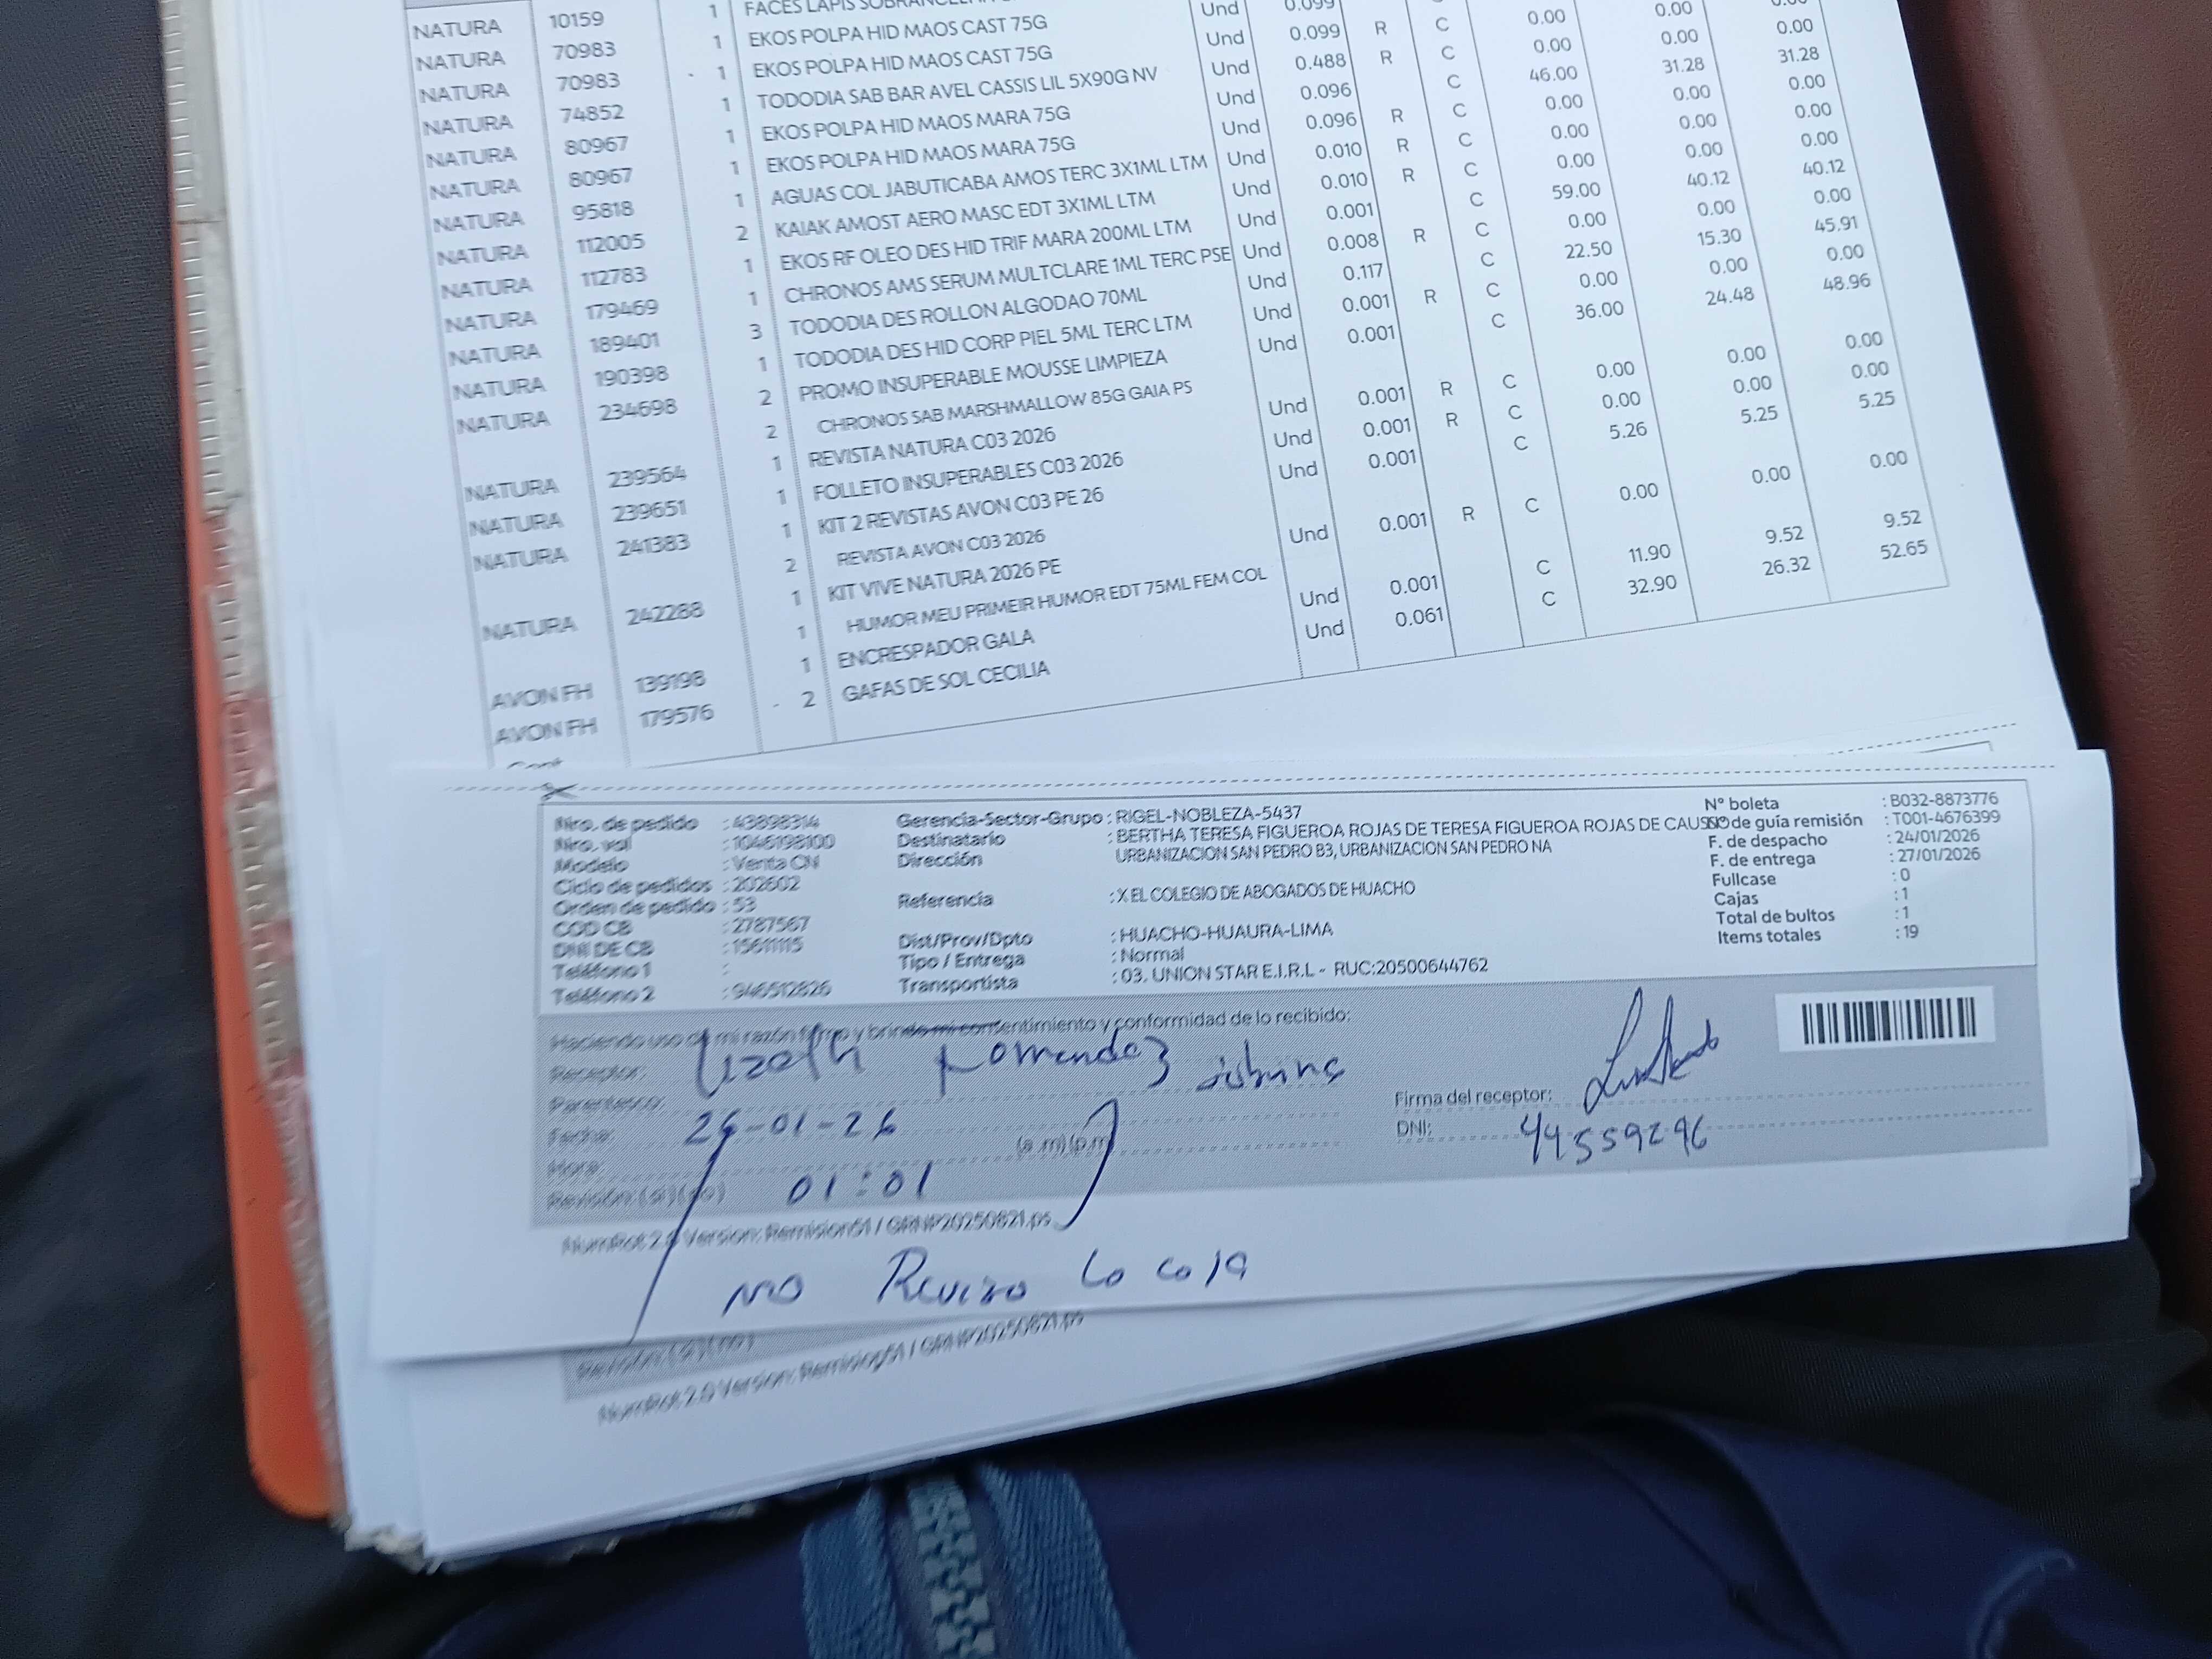 NATURA 10159 1 FACES LAPIS Und 0.099
NATURA 70983 1 EKOS POLPA HID MAOS CAST 75G Und 0.099 R C 0.00 0.00 0.00
NATURA 70983 1 EKOS POLPA HID MAOS CAST 75G Und 0.488 R C 0.00 0.00 0.00
NATURA 74852 1 TODODIA SAB BAR AVEL CASSIS LIL 5X90G NV Und 0.096 C 46.00 31.28 31.28
NATURA 80967 1 EKOS POLPA HID MAOS MARA 75G Und 0.096 R C 0.00 0.00 0.00
NATURA 80967 1 EKOS POLPA HID MAOS MARA 75G Und 0.010 R C 0.00 0.00 0.00
NATURA 95818 1 AGUAS COL JABUTICABA AMOS TERC 3X1ML LTM Und 0.010 R C 0.00 0.00 0.00
NATURA 112005 2 KAIAK AMOST AERO MASC EDT 3X1ML LTM Und 0.001 C 59.00 40.12 40.12
NATURA 112783 1 EKOS RF OLEO DES HID TRIF MARA 200ML LTM Und 0.008 R C 0.00 0.00 0.00
NATURA 179469 1 CHRONOS AMS SERUM MULTCLARE 1ML TERC PSE Und 0.117 C 22.50 15.30 45.91
NATURA 189401 3 TODODIA DES ROLLON ALGODAO 70ML Und 0.001 R C 0.00 0.00 0.00
NATURA 190398 1 TODODIA DES HID CORP PIEL 5ML TERC LTM Und 0.001 C 36.00 24.48 48.96
NATURA 234698 2 PROMO INSUPERABLE MOUSSE LIMPIEZA
2 CHRONOS SAB MARSHMALLOW 85G GAIA PS Und 0.001 R C 0.00 0.00 0.00
NATURA 239564 1 REVISTA NATURA C03 2026 Und 0.001 R C 0.00 0.00 0.00
NATURA 239651 1 FOLLETO INSUPERABLES C03 2026 Und 0.001 C 5.26 5.25 5.25
NATURA 241383 1 KIT 2 REVISTAS AVON C03 PE 26
2 REVISTA AVON C03 2026 Und 0.001 R C 0.00 0.00 0.00
NATURA 242288 1 KIT VIVE NATURA 2026 PE
1 HUMOR MEU PRIMEIR HUMOR EDT 75ML FEM COL Und 0.001 C 11.90 9.52 9.52
AVON FH 139198 1 ENCRESPADOR GALA Und 0.061 C 32.90 26.32 52.65
AVON FH 179576 2 GAFAS DE SOL CECILIA
Nro. de pedido : 43898314 Gerencia-Sector-Grupo : RIGEL-NOBLEZA-5437 Nº boleta : B032-8873776
Nro. val : 1046198100 Destinatario : BERTHA TERESA FIGUEROA ROJAS DE TERESA FIGUEROA ROJAS DE CAUSSO Nº de guía remisión : T001-4676399
Modelo : Venta CN Dirección URBANIZACION SAN PEDRO B3, URBANIZACION SAN PEDRO NA F. de despacho : 24/01/2026
Ciclo de pedidos : 202602 F. de entrega : 27/01/2026
Orden de pedido : 53 Referencia : X EL COLEGIO DE ABOGADOS DE HUACHO Fullcase : 0
COD CB : 2787567 Cajas : 1
DNI DE CB : 15611115 Dist/Prov/Dpto : HUACHO-HUAURA-LIMA Total de bultos : 1
Teléfono 1 : Tipo / Entrega : Normal Items totales : 19
Teléfono 2 : 946512826 Transportista : 03. UNION STAR E.I.R.L - RUC:20500644762
Haciendo uso de mi razón firmo y brindo mi consentimiento y conformidad de lo recibido:
Receptor: Lizeth
Parentesco:
Firma del receptor:
Fecha: 26-01-26 DNI: 44559296
Hora: (a.m)(p.m)
Revisión: (si)(no) 01:01
NumPot 2.0 Version: Remision51 / GRNP20250821.ps
NO Revizo la caja
Revisión: (si)(no)
NumPot 2.0 Version: Remision51 / GRNP20250821.ps